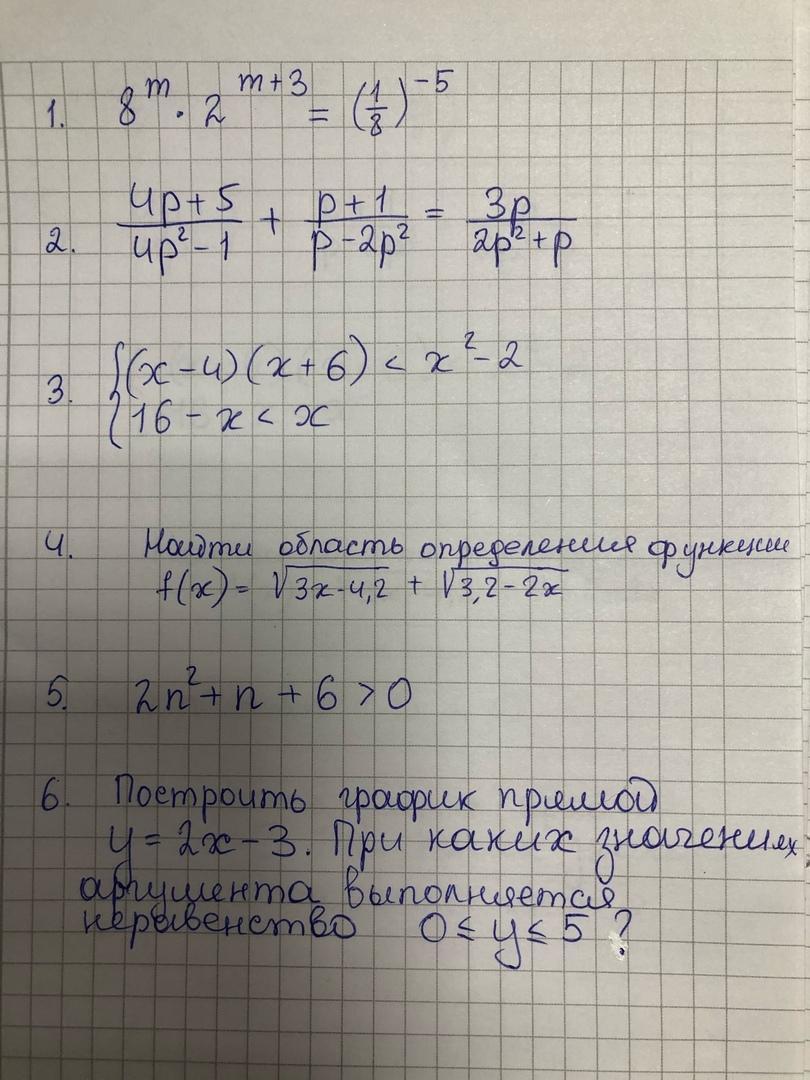 1. 8^m · 2^(m+3) = (1/8)^(-5)
2. (4p+5)/(4p²-1) + (p+1)/(p-2p²) = 3p/(2p²+p)
3. { (x-4)(x+6) < x²-2
16 - x < x
4. Найти область определения функции
f(x) = √(3x-4,2) + √(3,2-2x)
5. 2n² + n + 6 > 0
6. Построить график прямой
y = 2x - 3. При каких значениях
аргумента выполняется
неравенство 0 ≤ y ≤ 5 ?